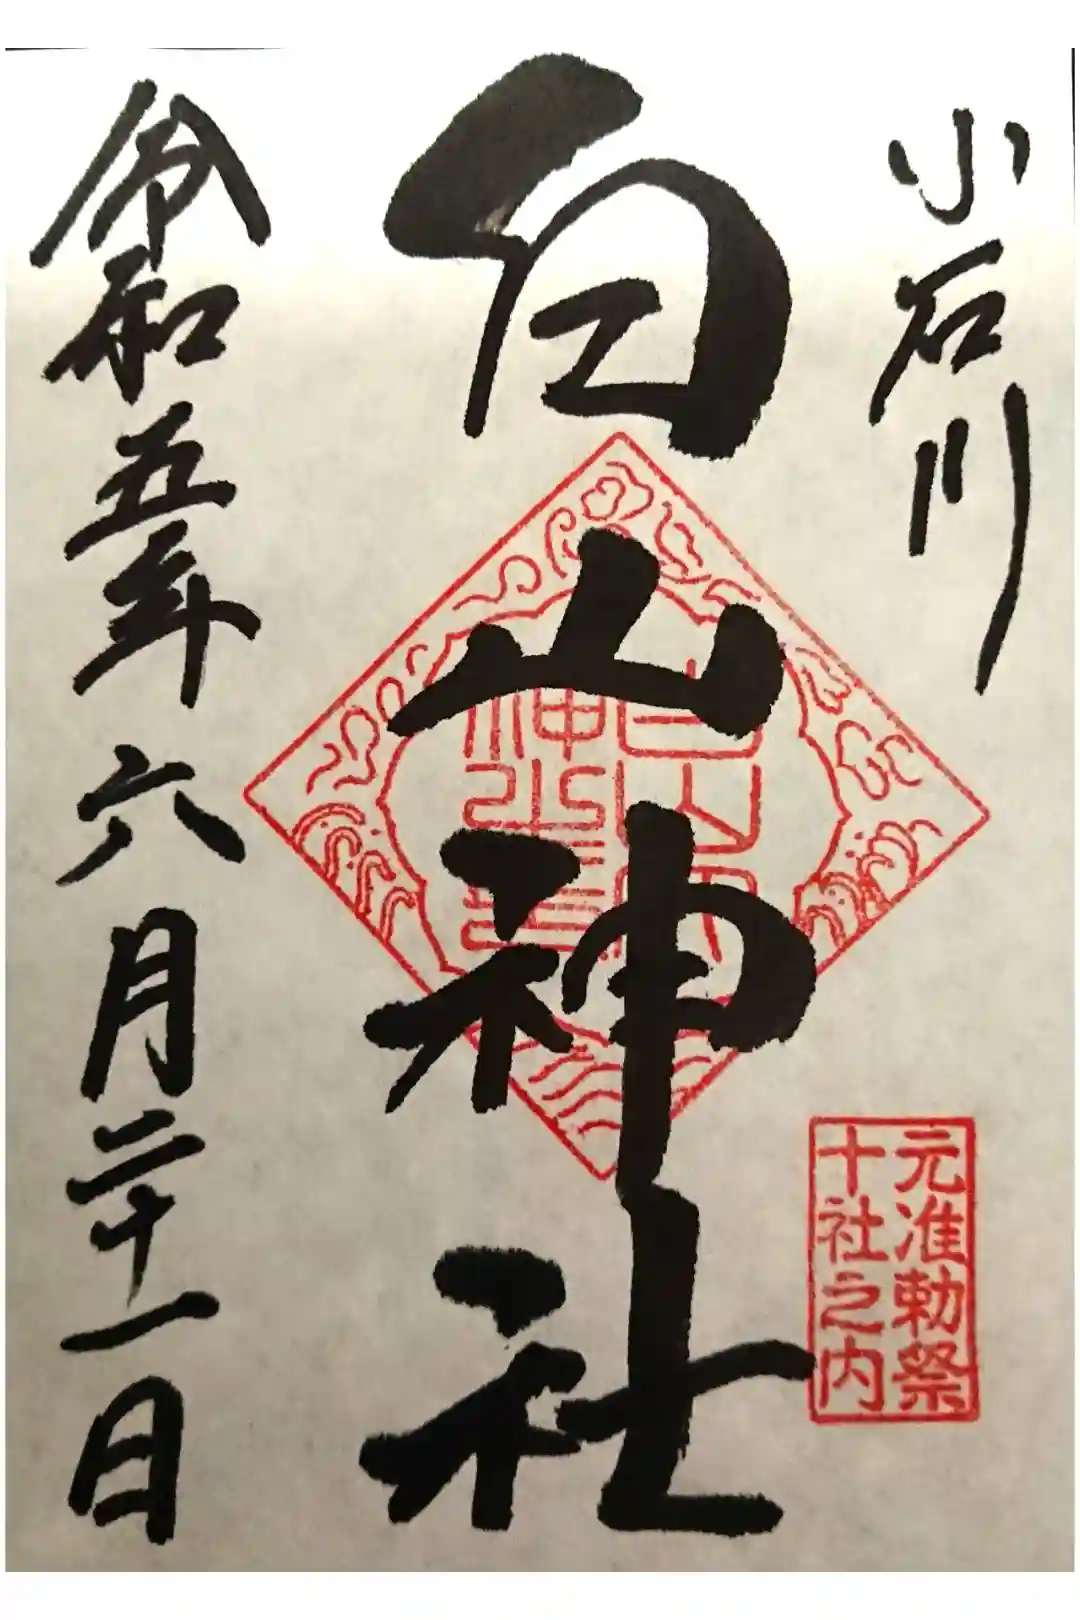 小石川
白山神社
令和五年六月二十一日
元准勅祭
十社之内